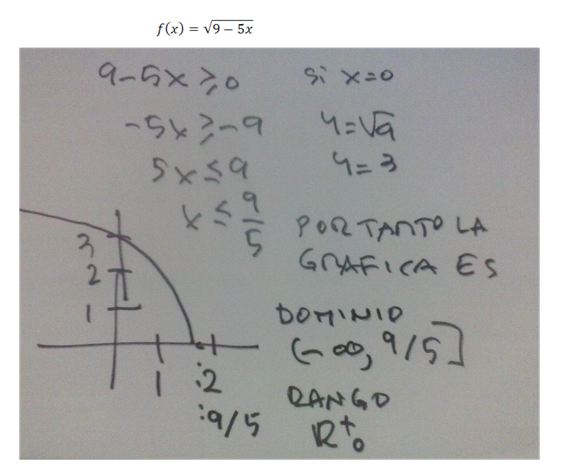 f(x) = √9 − 5x
9-5x ≥ 0
-5x ≥ -9
5x ≤ 9
x ≤ 9/5
si x=0
y=√9
y=3
POR TANTO LA
GRAFICA ES
3
2
1
1
:2
:9/5
DOMINIO
(-∞, 9/5]
RANGO
R⁺₀